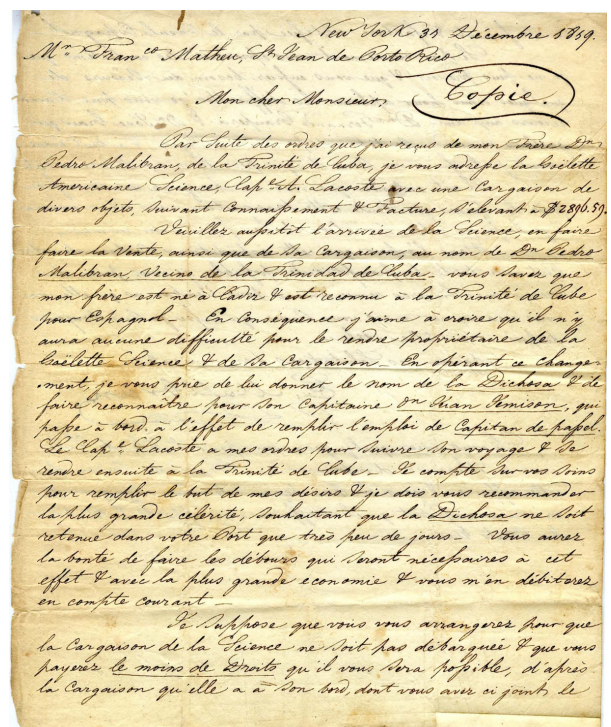 New York 31 Décembre 1819.
Mr. Franco Matheu, St Jean de Porto Rico
Mon cher Monsieur,
Copie.
Par Suite des ordres que j'ai reçus de mon frère Dn
Pedro Malibran, de la Trinité de Cuba, je vous adresse la Goëlette
Americaine Science, Capt. A. Lacoste avec une Cargaison de
divers objets, Suivant Connaissement & Facture, S'élevant à $2896.59.
Veuillez aussitôt l'arrivée de la Science, en faire
faire la Vente, ainsi que de Sa Cargaison, au nom de Dn Pedro
Malibran, Vecino de la Trinidad de Cuba. vous Savez que
mon frère est né à Cadix & est reconnu à la Trinité de Cube
pour Espagnol - En Conséquence j'aime à croire qu'il n'y
aura aucune difficulté pour le rendre propriétaire de la
Goëlette Science & de Sa Cargaison - En opérant ce Change-
ment, je vous prie de lui donner le nom de la Dichosa & de
faire reconnaître pour Son Capitaine Dn Juan Jemison, qui
passe à bord à l'effet de remplir l'emploi de Capitan de papel.
Le Capt. Lacoste a mes ordres pour suivre Son voyage & Se
rendre ensuite à la Trinité de Cube - Je compte Sur vos Soins
pour remplir le but de mes désirs & je dois vous recommander
la plus grande célérité, Souhaitant que la Dichosa ne Soit
retenue dans votre Port que très peu de jours - Vous aurez
la bonté de faire les débours qui Seront nécessaires à cet
effet & avec la plus grande economie & vous m'en débiterez
en compte courant -
Je Suppose que vous vous arrangerez pour que
la Cargaison de la Science ne Soit pas débarquée & que vous
payerez le moins de Droits qu'il vous Sera possible, d'après
la Cargaison qu'elle a à Son bord, dont vous avez ci joint le